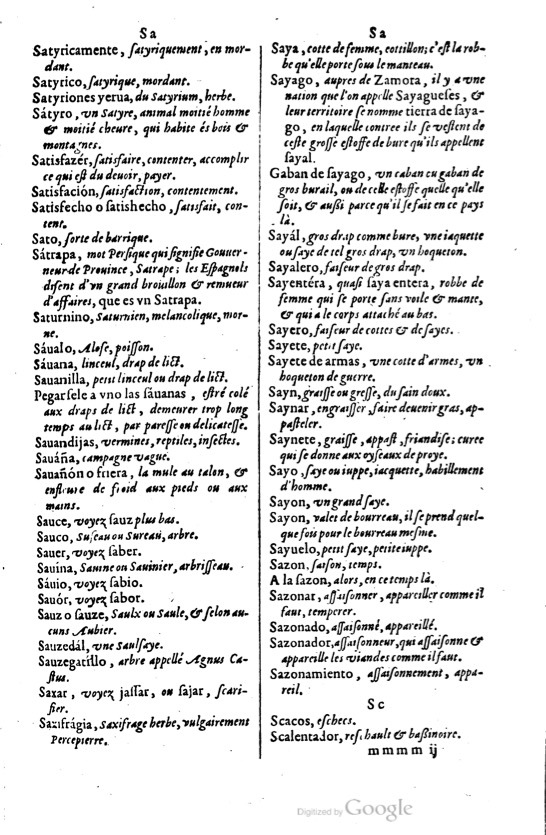 Sa
Satyricamente, ſatyriquement, en mor-
dant.
Satyrico, ſatyrique, mordant.
Satyriones yerua, du Satyrium, herbe.
Sátyro, vn Satyre, animal moitié homme
& moitié cheure, qui habite és bois &
montagnes.
Satisfazér, ſatisfaire, contenter, accomplir
ce qui eſt du deuoir, payer.
Satisfación, ſatisfaction, contentement.
Satisfecho o ſatishecho, ſatisfait, con-
tent.
Sato, ſorte de barrique.
Sátrapa, mot Perſique qui ſignifie Gouuer-
neur de Prouince, Satrape; les Eſpagnols
diſent d'vn grand brouillon & remueur
d'affaires, que es vn Satrapa.
Saturnino, Saturnien, melancolique, mor-
ne.
Sáualo, Aloſe, poiſſon.
Sáuana, linceul, drap de lict.
Sauanilla, petit linceul ou drap de lict.
Pegarſele a vno las ſáuanas, eſtré colé
aux draps de lict, demeurer trop long
temps au lict, par pareſſe ou delicateſſe.
Sauandijas, vermines, reptiles, inſectes.
Sauáña, campagne vague.
Sauañón o friera, la mule au talon, &
enfleure de froid aux pieds ou aux
mains.
Sauce, voyez ſauz plus bas.
Sauco, Suſeau ou Sureau, arbre.
Sauer, voyez ſaber.
Sauína, Sauine ou Sauinier, arbriſſeau.
Sáuio, voyez ſabio.
Sauór, voyez ſabor.
Sauz o ſauze, Saulx ou Saule, & ſelon au-
cuns Aubier.
Sauzedál, vne Saulſaye.
Sauzegatillo, arbre appellé Agnus Ca-
ſtus.
Saxar, voyez jaſſar, ou ſajar, ſcari-
fier.
Saxifrágia, Saxifrage herbe, vulgairement
Percepierre.
Sa
Saya, cotte de femme, cottillon; c'eſt la rob-
be qu'elle porte ſous le manteau.
Sayago, aupres de Zamora, il y a vne
nation que l'on appelle Sayagueſes, &
leur territoire ſe nomme tierra de ſaya-
go, en laquelle contree ils ſe veſtent de
ceſte groſſe eſtoffe de bure qu'ils appellent
ſayal.
Gaban de ſayago, vn caban ou gaban de
gros burail, ou de celle eſtoffe quelle qu'elle
ſoit, & außi parce qu'il ſe fait en ce pays
là.
Sayál, gros drap comme bure, vne iaquette
ou ſaye de tel gros drap, vn hoqueton.
Sayalero, faiſeur de gros drap.
Sayentéra, quaſi ſaya entera, robbe de
femme qui ſe porte ſans voile & mante,
& qui a le corps attaché au bas.
Sayero, faiſeur de cottes & de ſayes.
Sayete, petit ſaye.
Sayete de armas, vne cotte d'armes, vn
hoqueton de guerre.
Sayn, graiſſe ou greſſe, du ſain doux.
Saynar, engraiſſer, faire deuenir gras, ap-
paſteler.
Saynete, graiſſe, appaſt, friandiſe; curee
qui ſe donne aux oyſeaux de proye.
Sayo, ſaye ou iuppe, iacquette, habillement
d'homme.
Sayon, vn grand ſaye.
Sayon, valet de bourreau, il ſe prend quel-
que fois pour le bourreau meſme.
Sayuelo, petit ſaye, petite iuppe.
Sazon, ſaiſon, temps.
A la ſazon, alors, en ce temps là.
Sazonar, aſſaiſonner, appareiller comme il
faut, temperer.
Sazonado, aſſaiſonné, appareillé.
Sazonador, aſſaiſonneur, qui aſſaiſonne &
appareille les viandes comme il faut.
Sazonamiento, aſſaiſonnement, appa-
reil.
Sc
Scacos, eſchecs.
Scalentador, reſchault & baßinoire.
mmmm ij
Digitized by Google